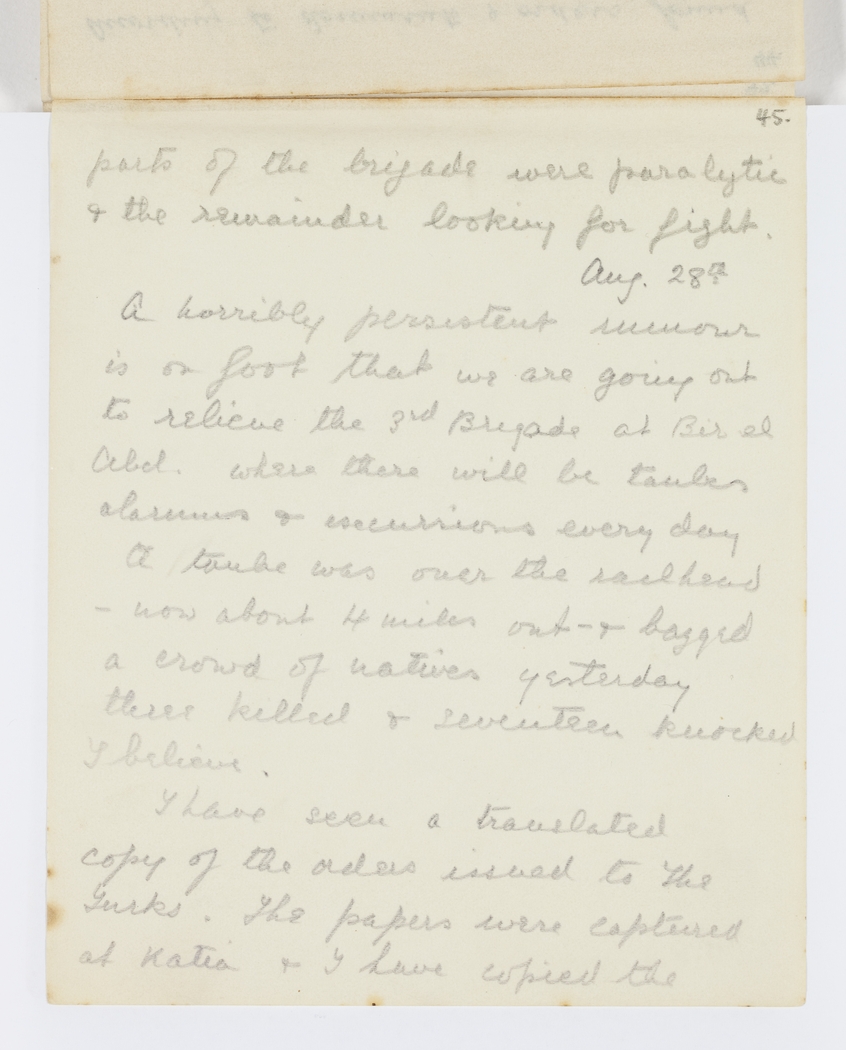 45.
parts of the brigade were paralytic
& the remainder looking for fight.
Aug. 28th
A horribly persistent rumour
is on foot that we are going out
to relieve the 3rd Brigade at Bir el
Abd. where there will be taubes
alarums & excurrions every day
A taube was over the railhead
- now about 4 miles out - & bagged
a crowd of natives yesterday
three killed & seventeen knocked
I believe.
I have seen a translated
copy of the orders issued to the
Turks. The papers were captured
at Katia & I have copied the